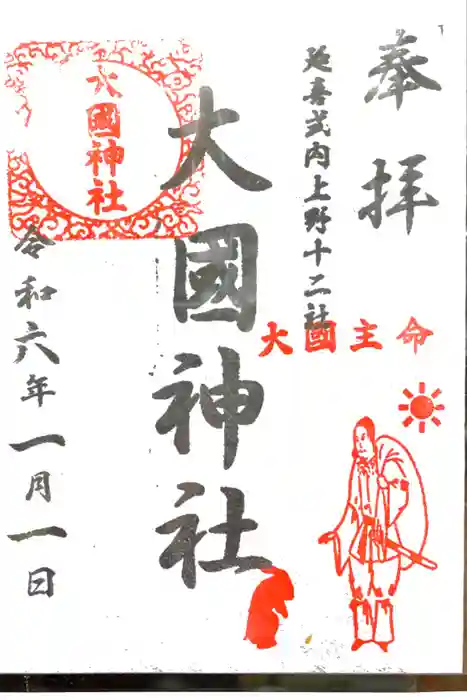 奉拝
延喜式内上野十二社
大國主命
大國神社
大國神社
令和六年一月一日